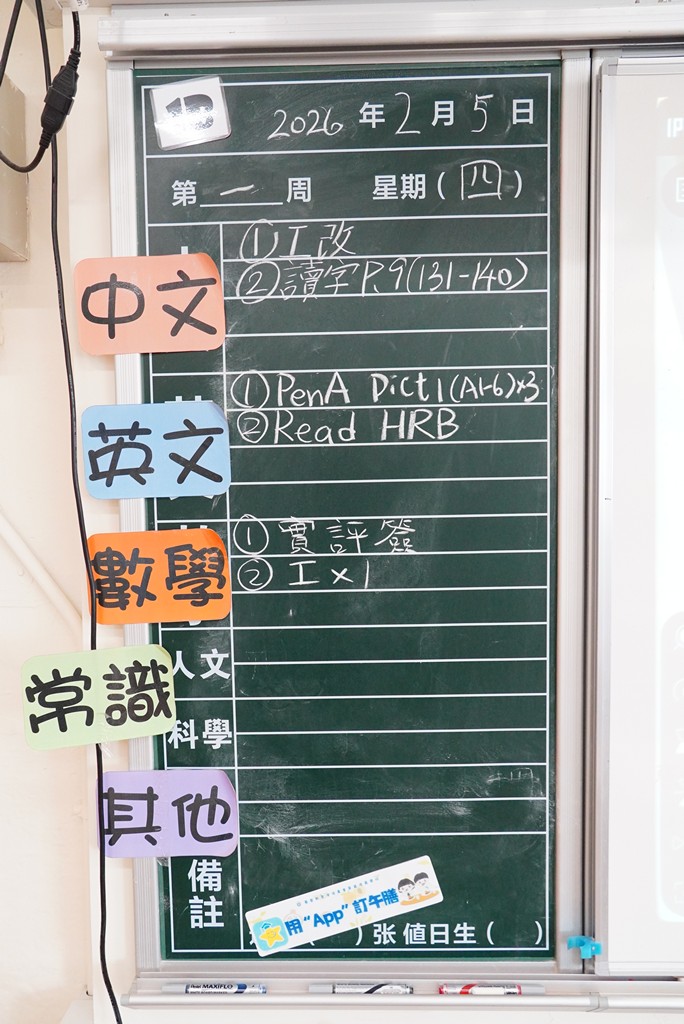 2026 年 2 月 5 日
第 一 周 星期(四)
中文
①工改
②讀字P.9(131-140)
英文
①PenA Dict1(A1-6)x3
②Read HRB
數學
① 實評簽
② 工x1
人文
常識
科學
其他
備註
用“App”訂午膳
)张 值日生( )
Pentel MAXIFLO